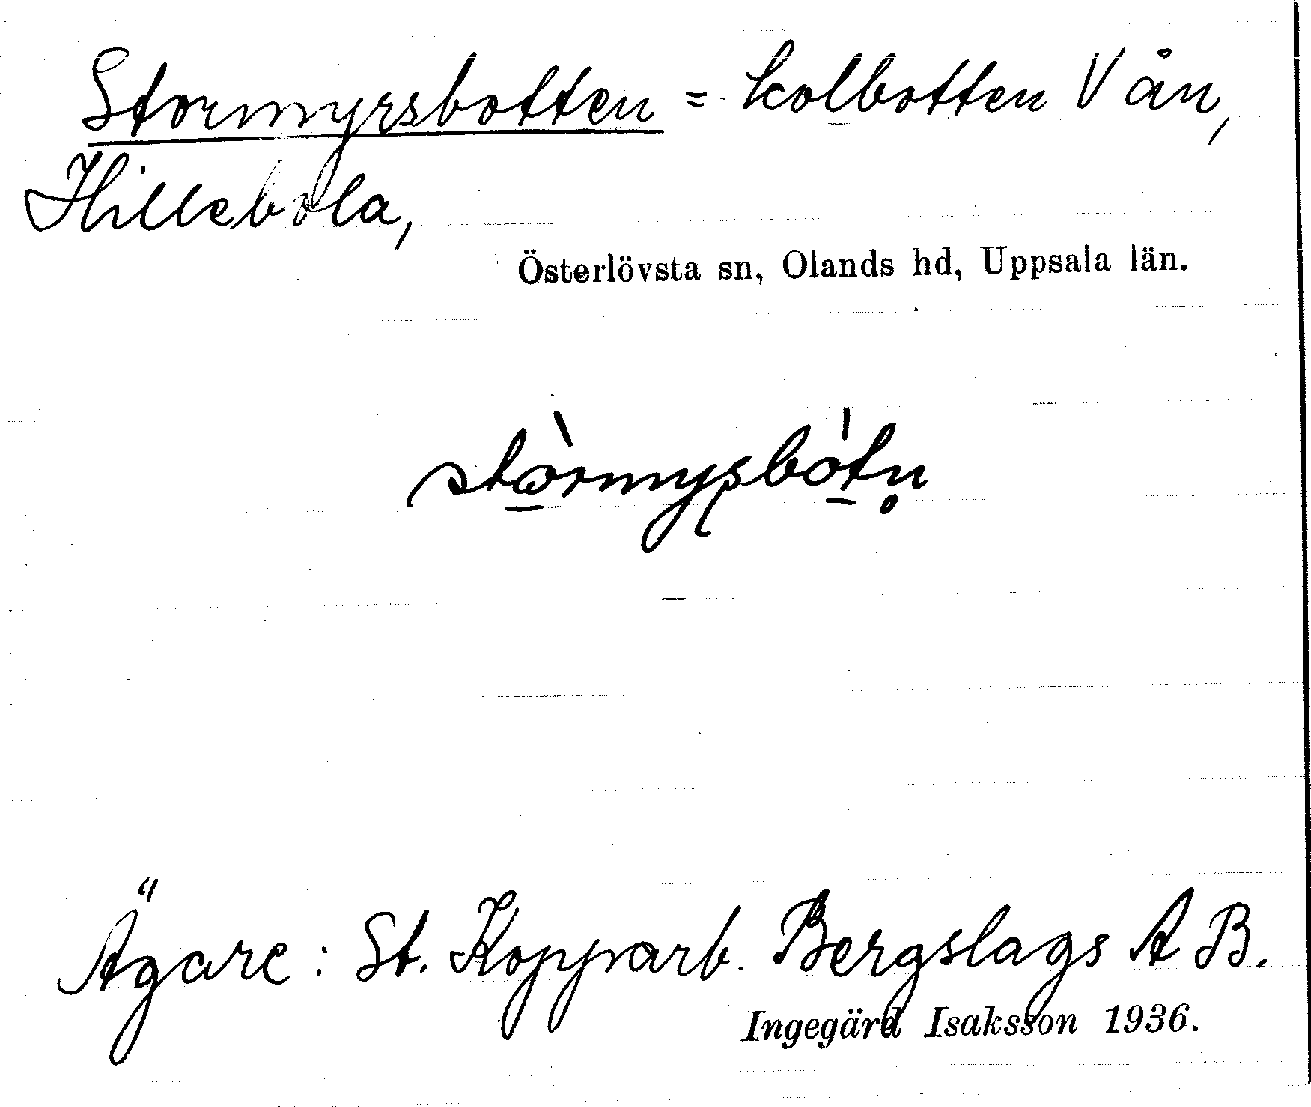 Stormyrsbotten = kolbotten V ån,
Hillebola,
Österlövsta sn, Olands hd, Uppsala län.
stòrmysbòtn̥
Ägare: St. Kopparb. Bergslags A B.
Ingegärd Isaksson 1936.